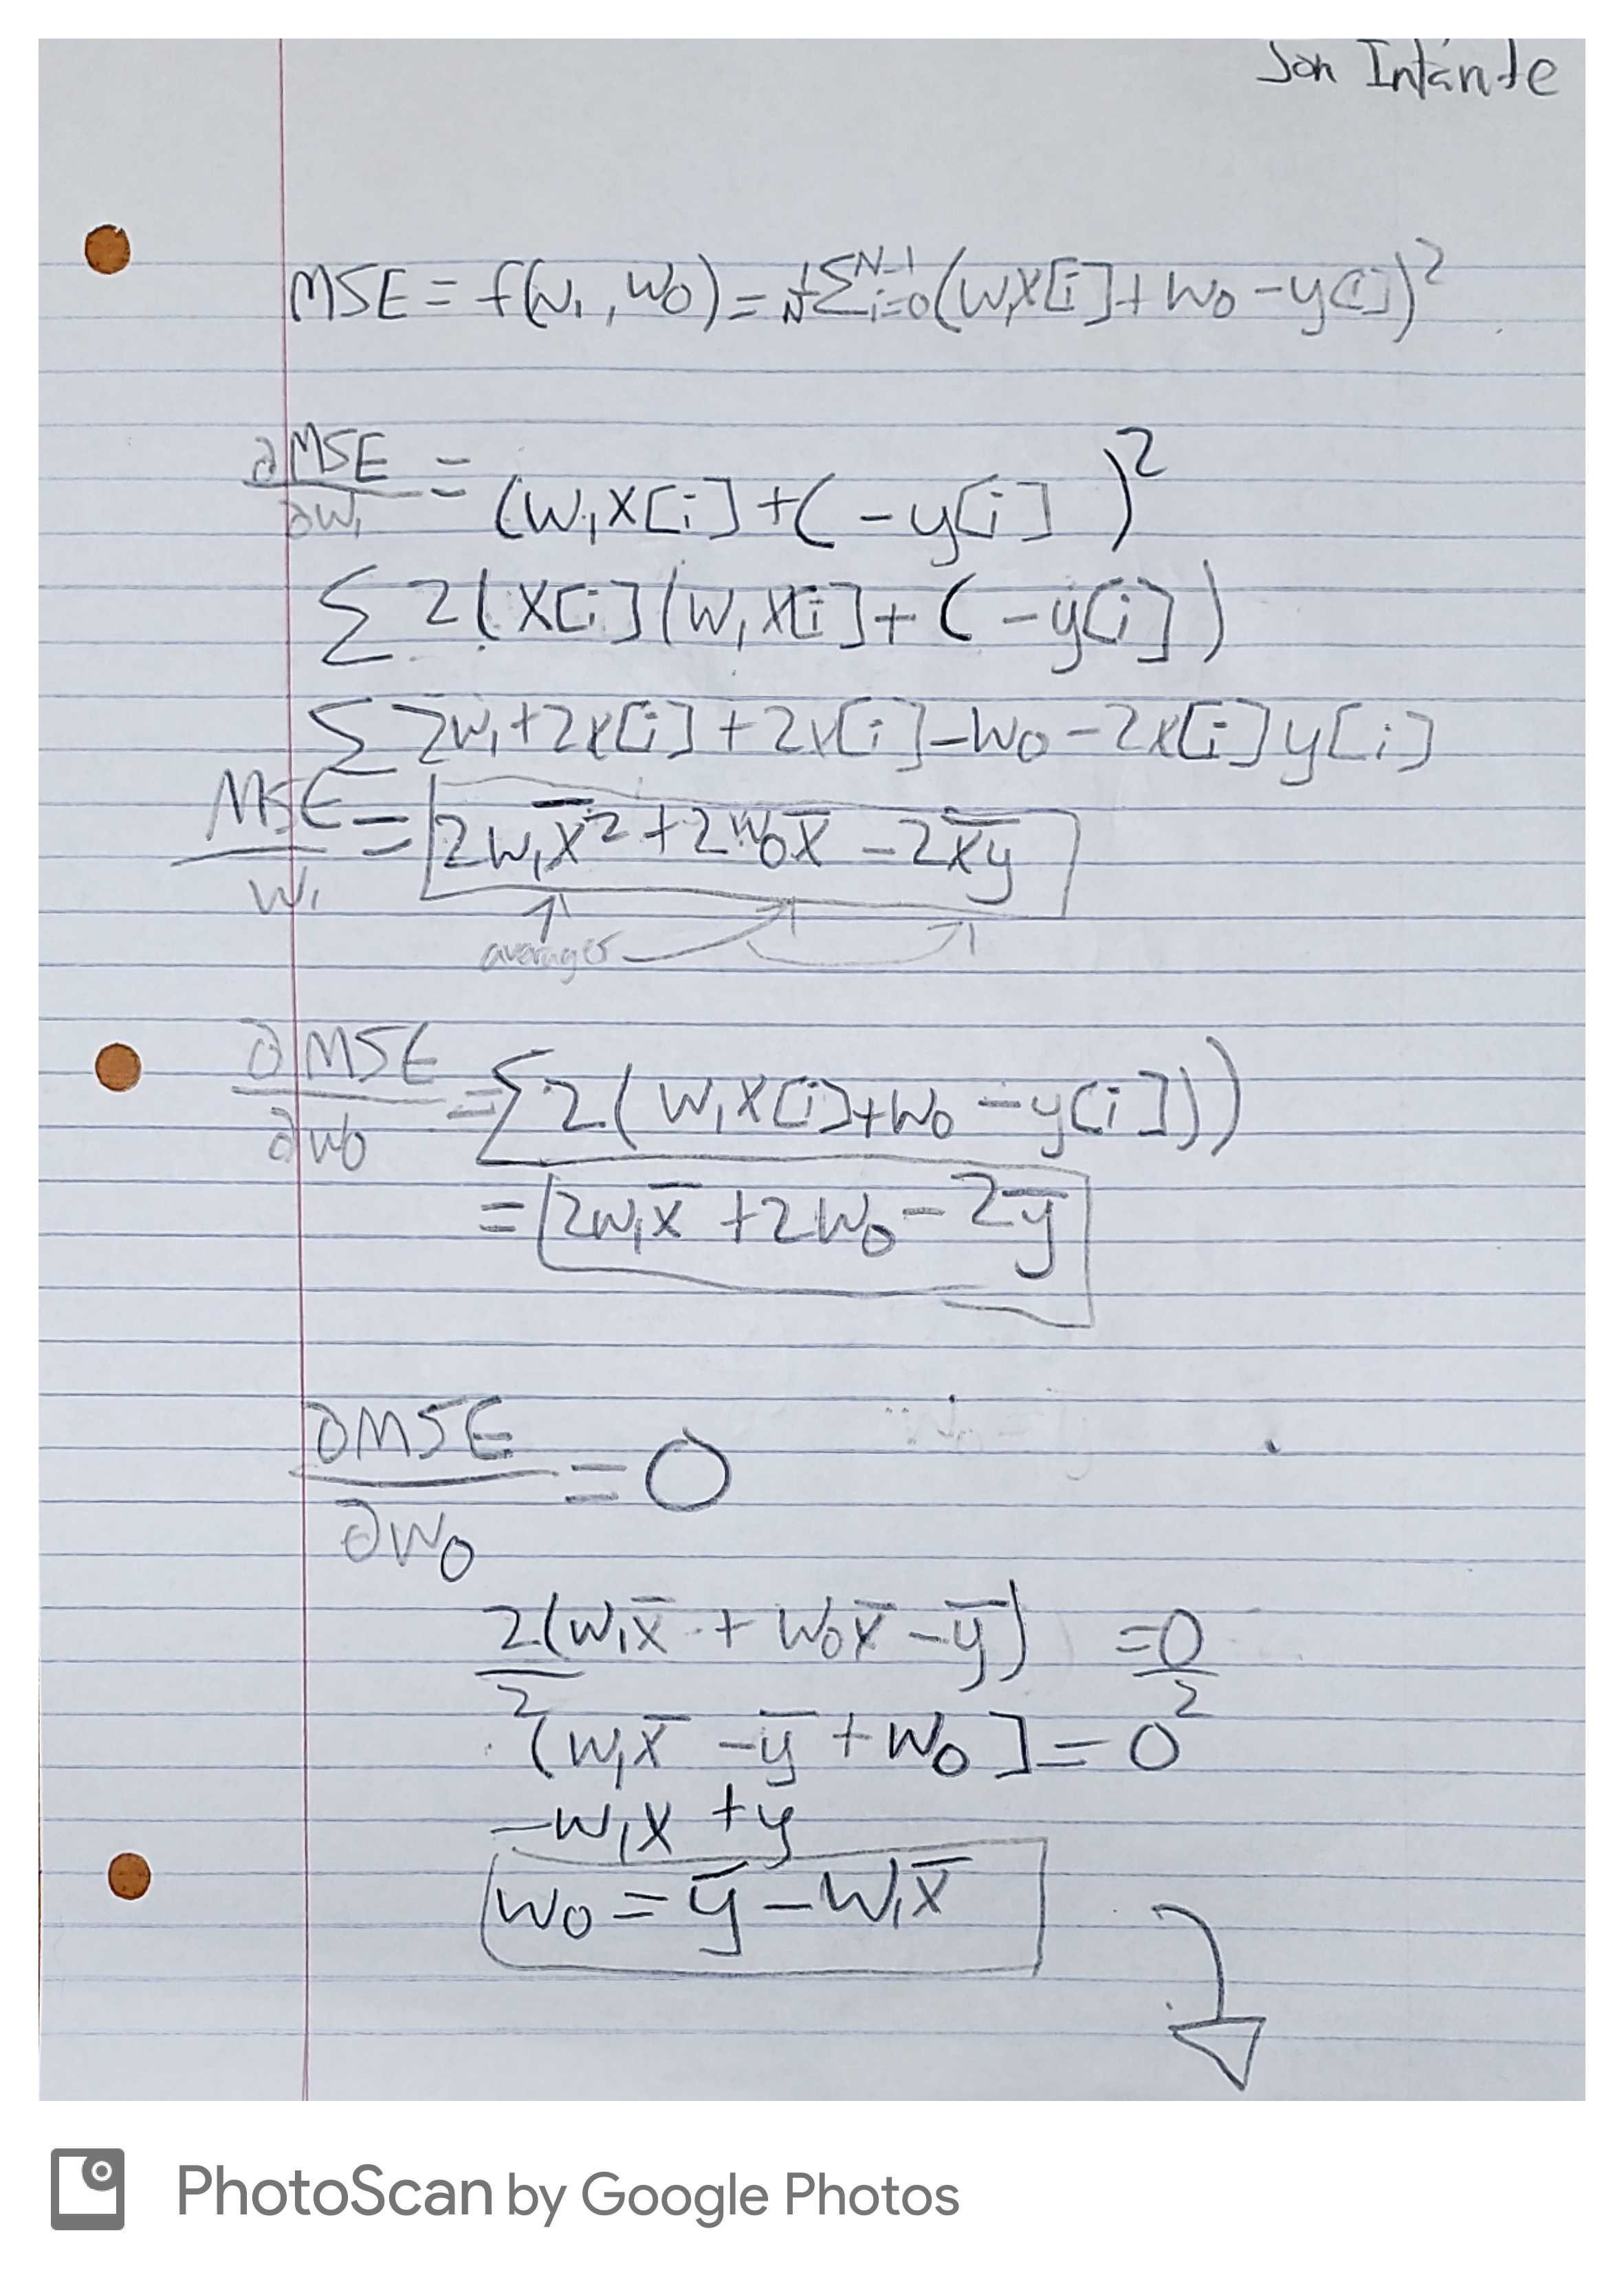 Jon Infante
MSE = f(w₁, w₀) = 1/N Σ_{i=0}^{N-1} (w₁x[i] + w₀ - y[i])²
∂MSE/∂w₁ = (w₁x[i] + ( - y[i] )²
Σ 2(x[i](w₁x[i] + ( - y[i])
Σ 2w₁ + 2x[i] + 2x[i] - w₀ - 2x[i]y[i]
MSE/w₁ = 2w₁x̄² + 2w₀x̄ - 2x̄ȳ
averages
∂MSE/∂w₀ = Σ 2(w₁x[i] + w₀ - y[i]))
= 2w₁x̄ + 2w₀ - 2ȳ
∂MSE/∂w₀ = 0
2(w₁x̄ + w₀x̄ - ȳ)/2 = 0/2
(w₁x̄ - ȳ + w₀] = 0
-w₁x + y
w₀ = ȳ - w₁x̄
PhotoScan by Google Photos